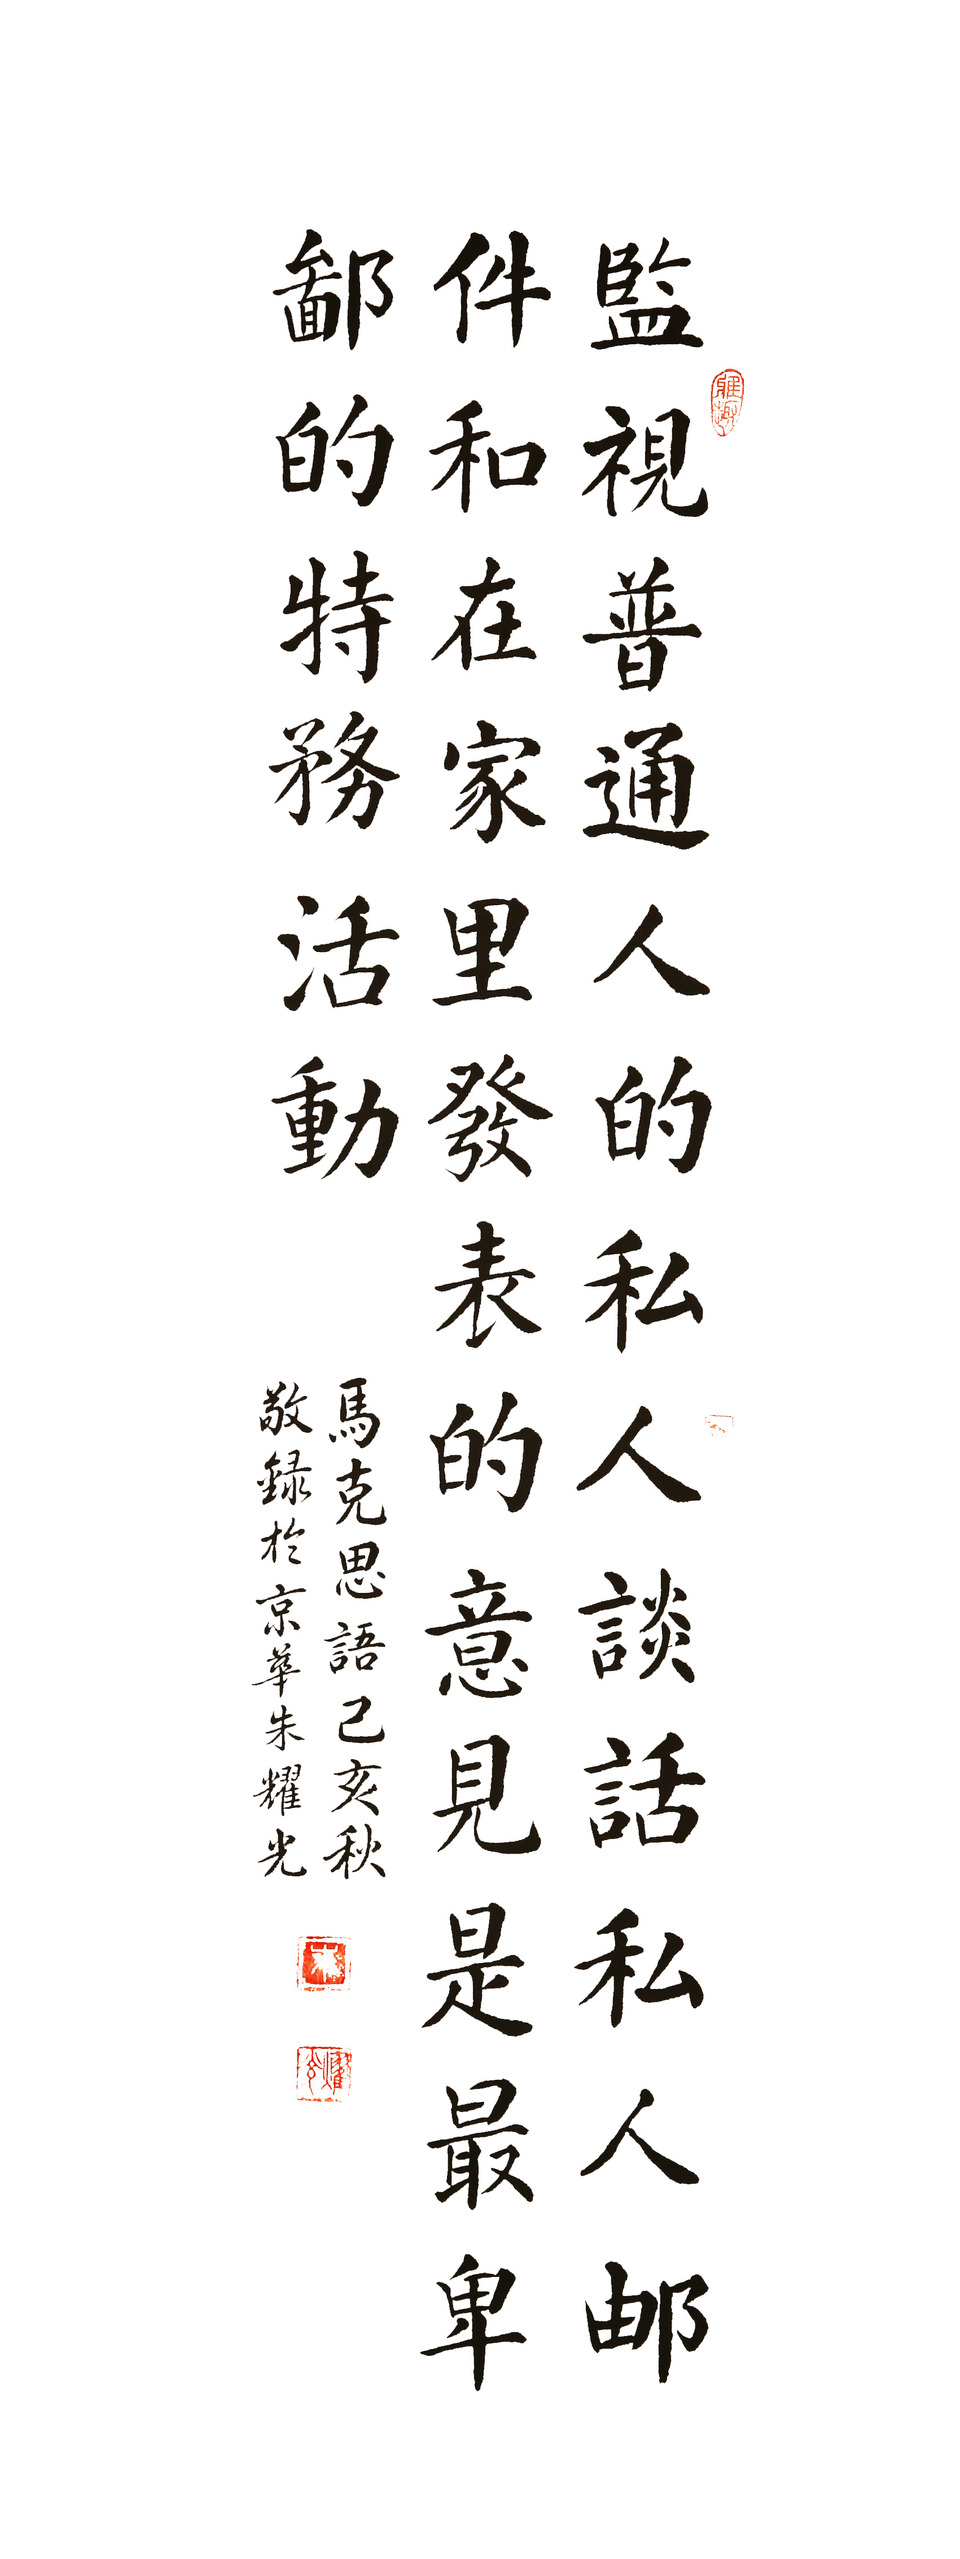 監視普通人的私人談話私人邮
件和在家里發表的意見是最卑
鄙的特務活動
馬克思語己亥秋
敬録於京華朱耀光
雅趣
朱
耀光